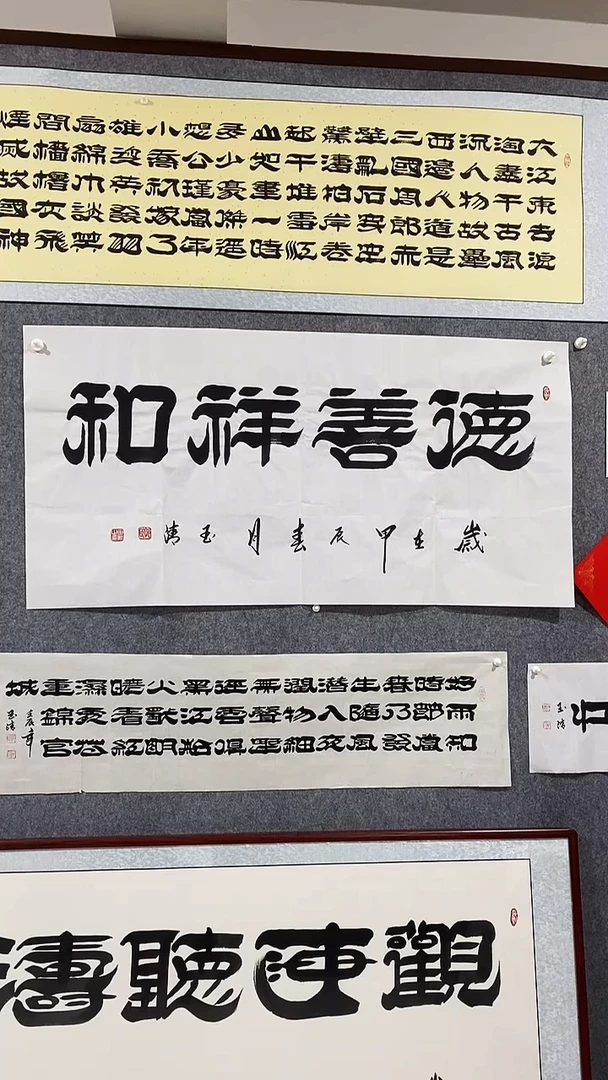 大江東去浪
淘盡千古風
流人物故壘
西邊人道是
三國周郎赤
壁亂石穿空
驚濤拍岸卷
起千堆雪江
山如畫一時
多少豪傑遙
想公瑾當年
小喬初嫁了
雄姿英發羽
扇綸巾談笑
間檣櫓灰飛
煙滅故國神
德善祥和
歲在甲辰春月玉清
好雨知
時節當
春乃發
生隨風
潛入夜
潤物細
無聲野
逕雲俱
黑江船
火獨明
曉看紅
濕處花
重錦官
城
玉清
玉清
觀海聽濤